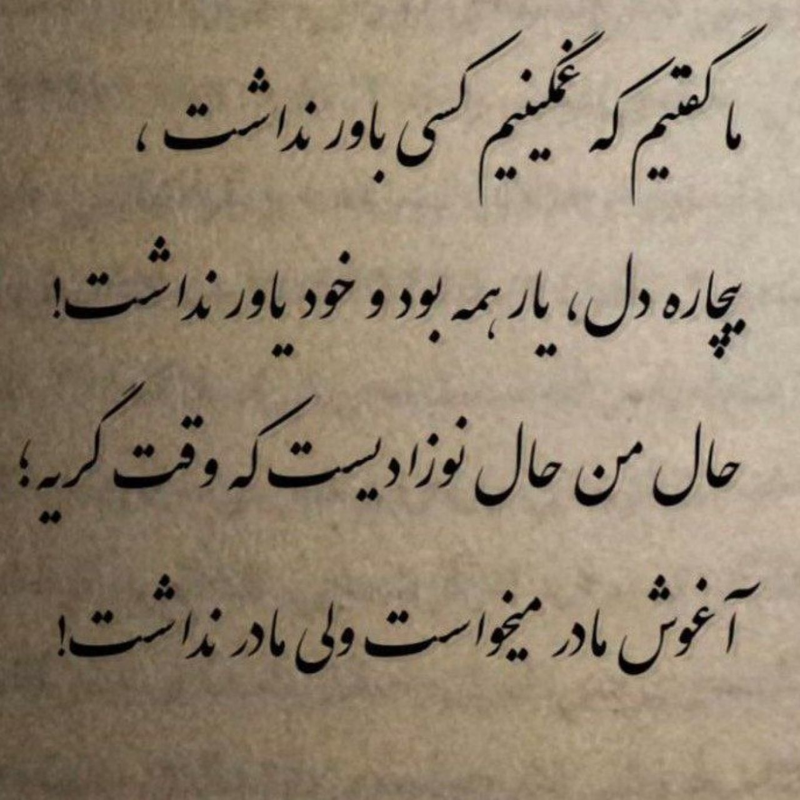 ما گفتیم که غمگینیم کسی باور نداشت ،
بیچاره دل، یار همه بود و خود یاور نداشت!
حال من حال نوزادیست که وقت گریه؛
آغوش مادر میخواست ولی مادر نداشت!